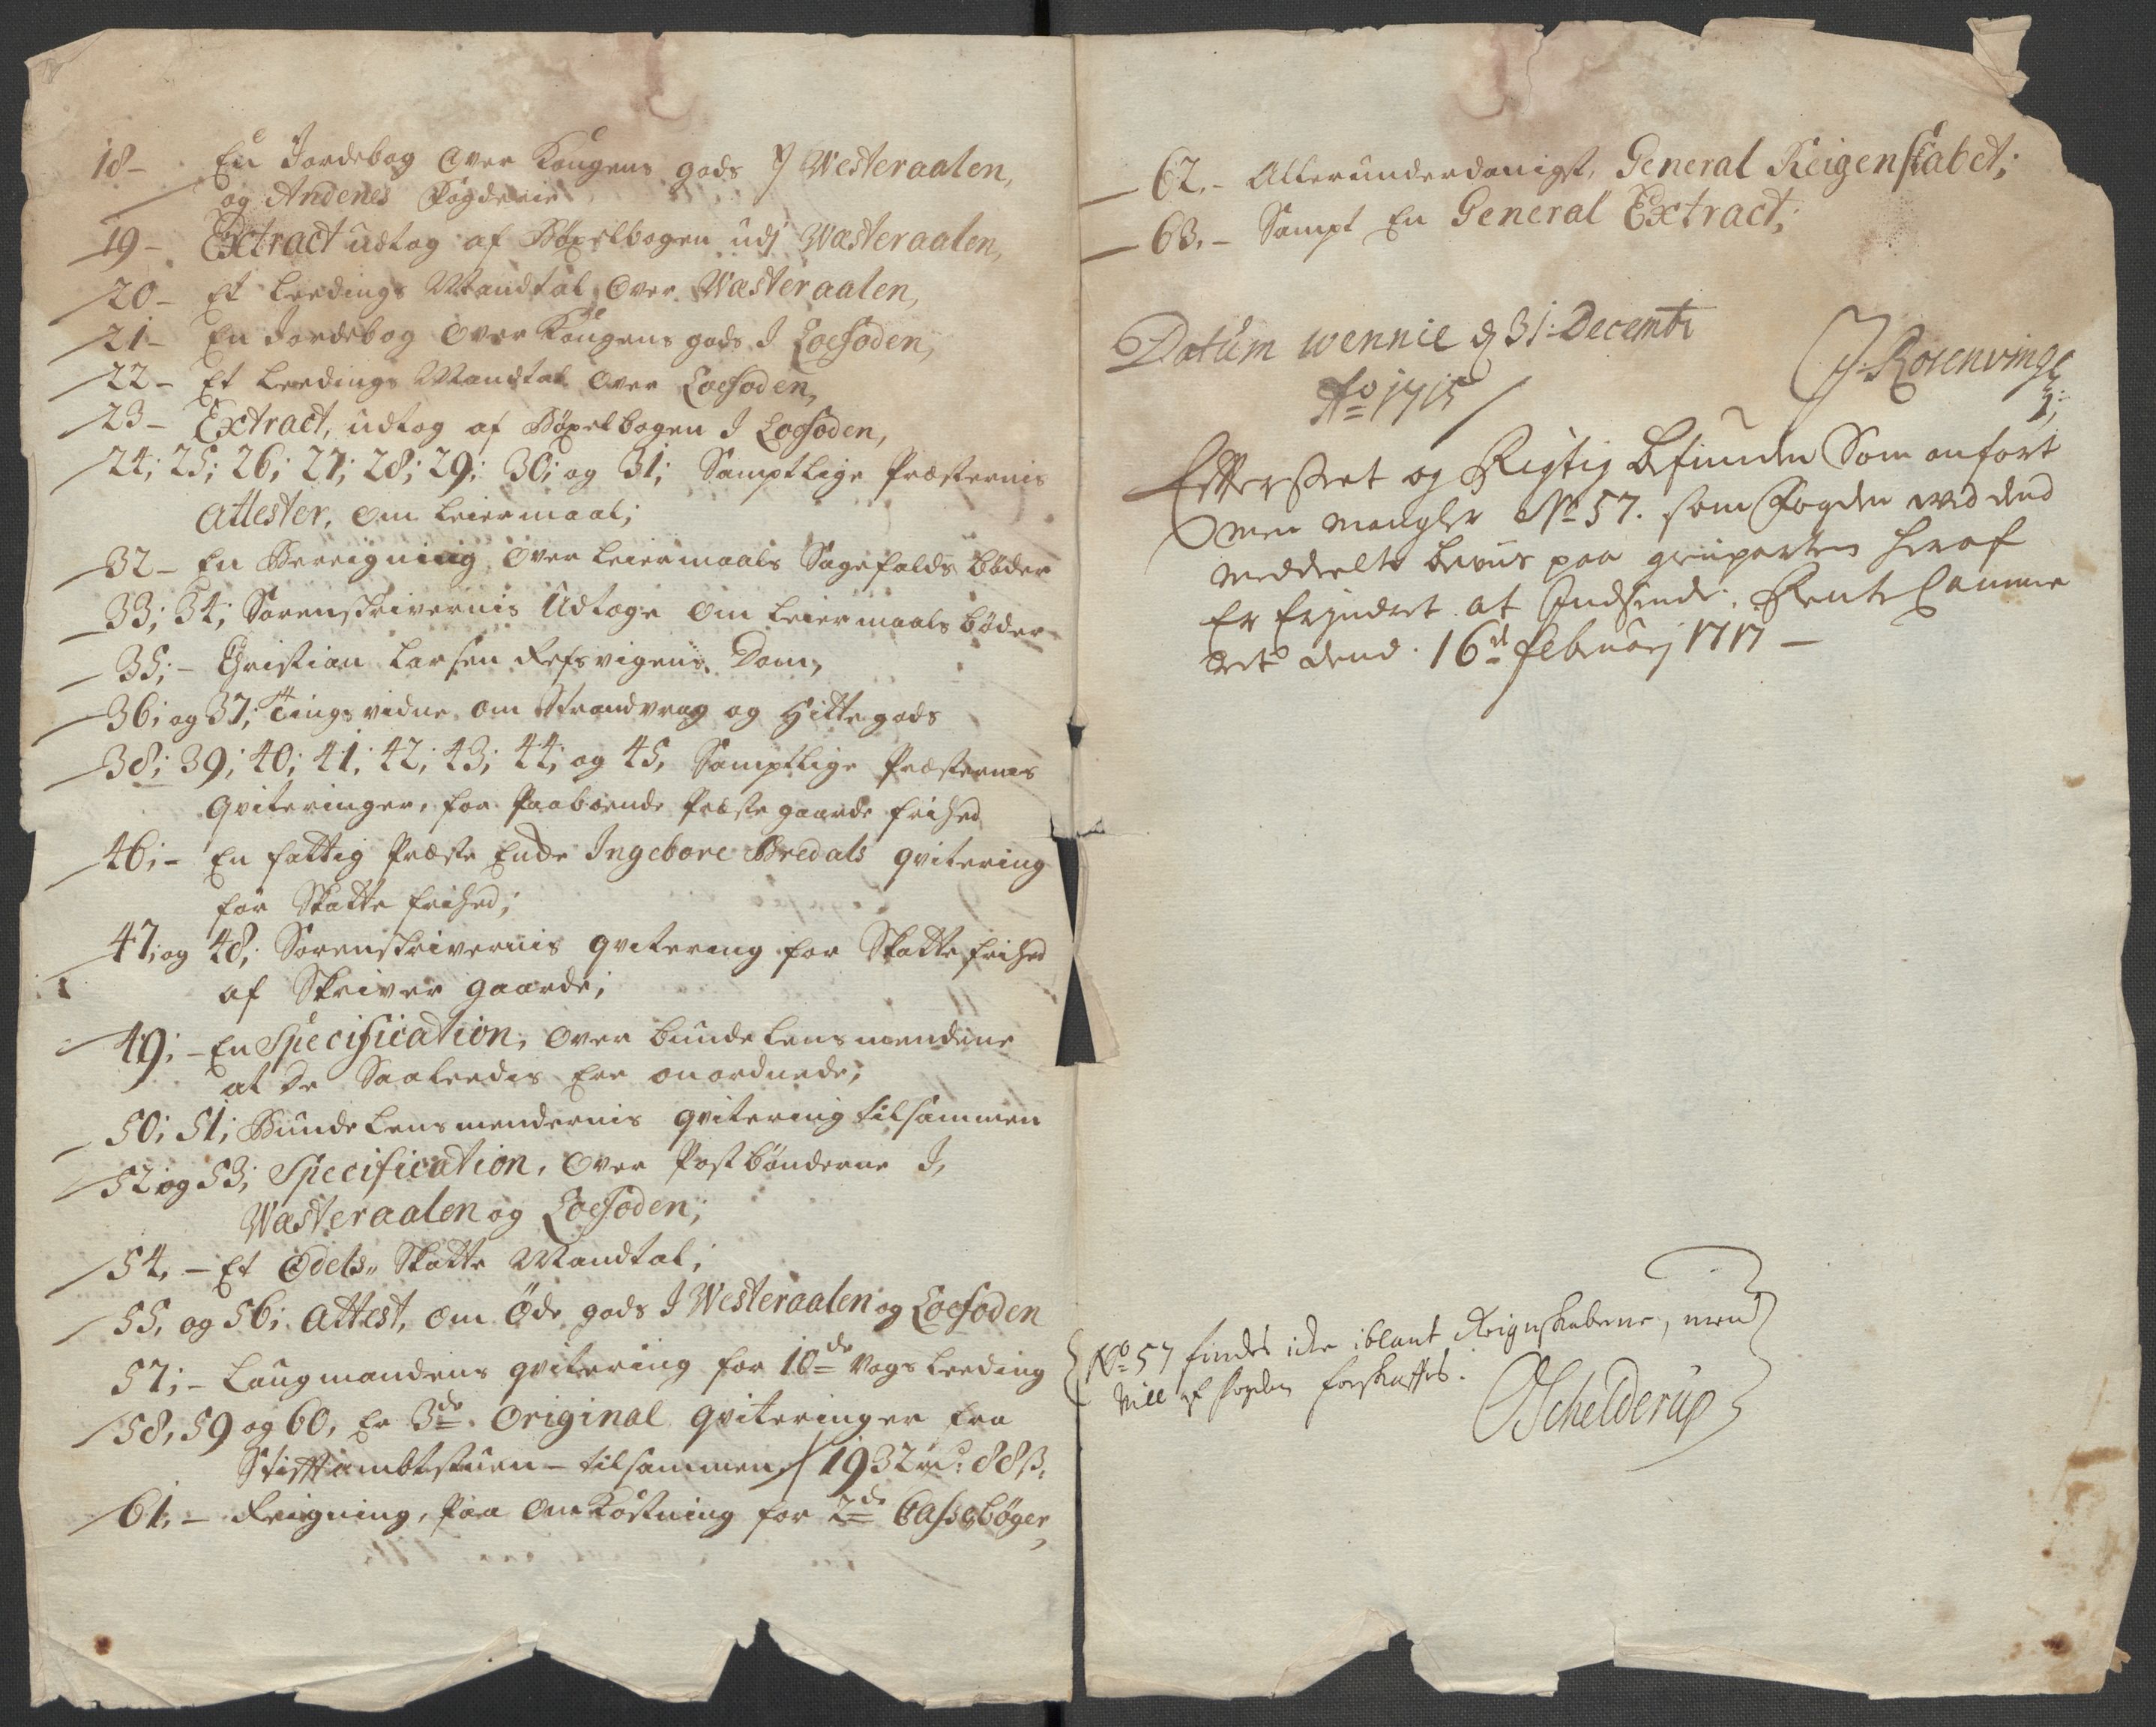 18 - En Jordebog Over Kongens gods J Westeraalen,
og Andenes Fogderie
19 - Extract udtog af Bøxelbogen udj Wæsteraalen,
20 - Et Leedings Mandtal Over Wæsteraalen,
21 - En Jordebog Over Kongens gods J Loefoden,
22 - Et Leedings Mandtal Over Loefoden,
23 - Extract, udtog af Bøxelbogen J Loefoden,
24; 25; 26; 27; 28; 29; 30; og 31; Samptlige Præsternis
Attester, om Leiermaal;
32 - En Bereigning Over Leiermaals Sagefalds bøder
33; 34; Sorenskrivernis Udtoge om Leiermaals bøder
35; - Christian Larsen Refsvigens Dom,
36; og 37; Tingsvidne om Strandvrag og Hittegods
38; 39; 40; 41; 42; 43; 44; og 45, Samptlige Præsternes
Qviteringer, for Paaboende Præstegaarde frihed
46; - En fattig Præste Enche Ingebore Bredals qvitering
for Skatte frihed;
47; og 48; Sorenskrivernis qvitering for Skatte frihed
af Skriver gaarde;
49; - En Specification, Over bunde Lensmendene
at De Saaleedis Ere anordnede;
50; 51; Bunde Lensmendernis qvitering tilsammen
52 og 53; Specification, Over Postbønderne J,
Wæsteraalen og Loefoden;
54, - Et Odels Skatte Mandtal;
55, og 56; Attest, om Øde gods J Westeraalen og Loefoden
57; - Laugmandens qvitering for 10de Vogs Leeding
58, 59 og 60, Er 3de Original qviteringer fra
Stifftambtstuen - tilsammen 1932 rd: 88 ß,
61, - Reigning, paa Omkostning for 2de Cassebøger,
62, - Allerunderdanigst, General Reigenskabet;
63, - Sampt En General Extract;
Datum Wennie d 31: Decembr
Ao 1715
J: Rosenvinge
Efterseet og Rigtig befunden Som anfort
men mangler No 57. som Fogden ved dend
meddeelte beviis paa genparten heraf
Er Erindret at Indsende. Rente Camme
ret dend 16de Februarij 1717 -
No 57 findes icke iblant Reignskaberne, men
vill af fogden forskaffes.
O Schelderup